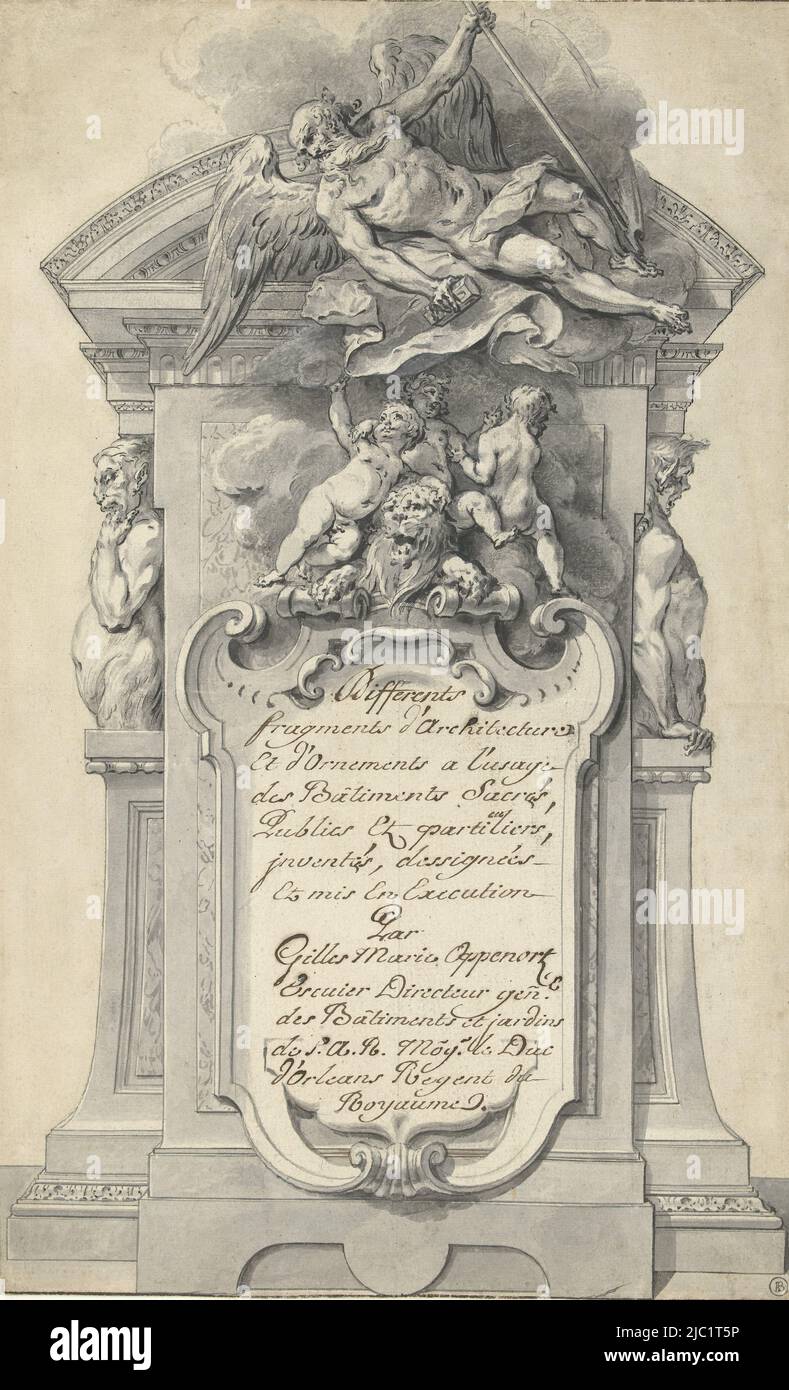 Differents
fragments d'Architecture
Et d'Ornements a l'usage
des Bâtiments Sacrés,
Publics Et partiliers,
cu
inventés, dessignées
Et mis En Execution
Par
Gilles Marie Oppenort
Escuier Directeur gen̄.
des Bâtiments et jardins
de S. A. R. Mōgr. le Duc
d'Orleans Regent du
Royaume.
alamy
Image ID: 2JC1T5P
www.alamy.com